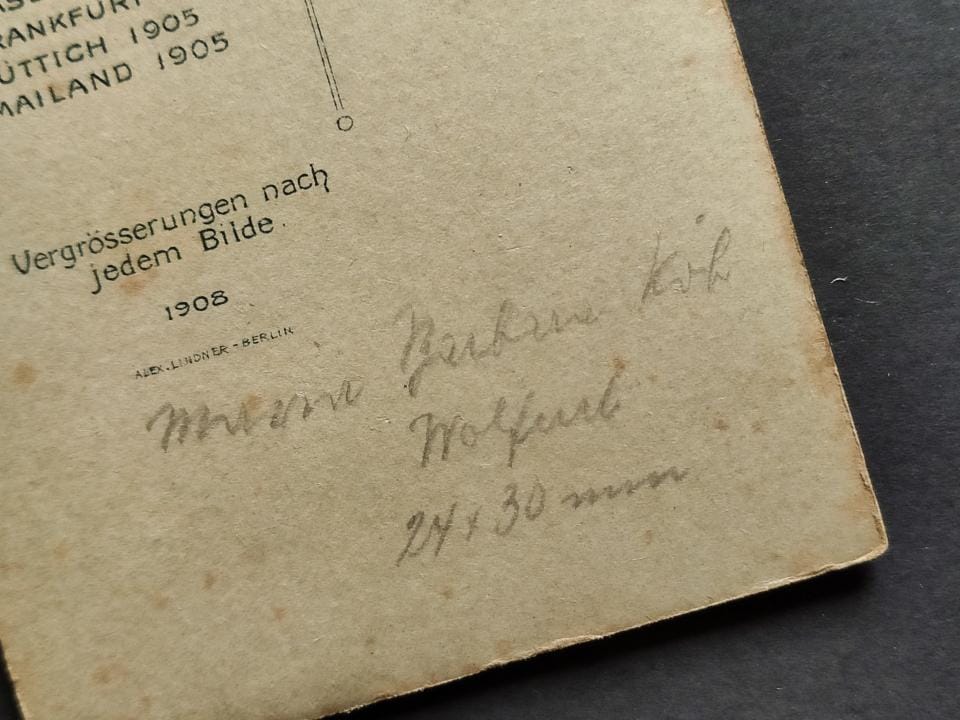 FRANKFURT
LÜTTICH 1905
MAILAND 1905
Vergrösserungen nach
jedem Bilde.
1908
ALEX. LINDNER-BERLIN
Barbara
Wolfurt
24x30